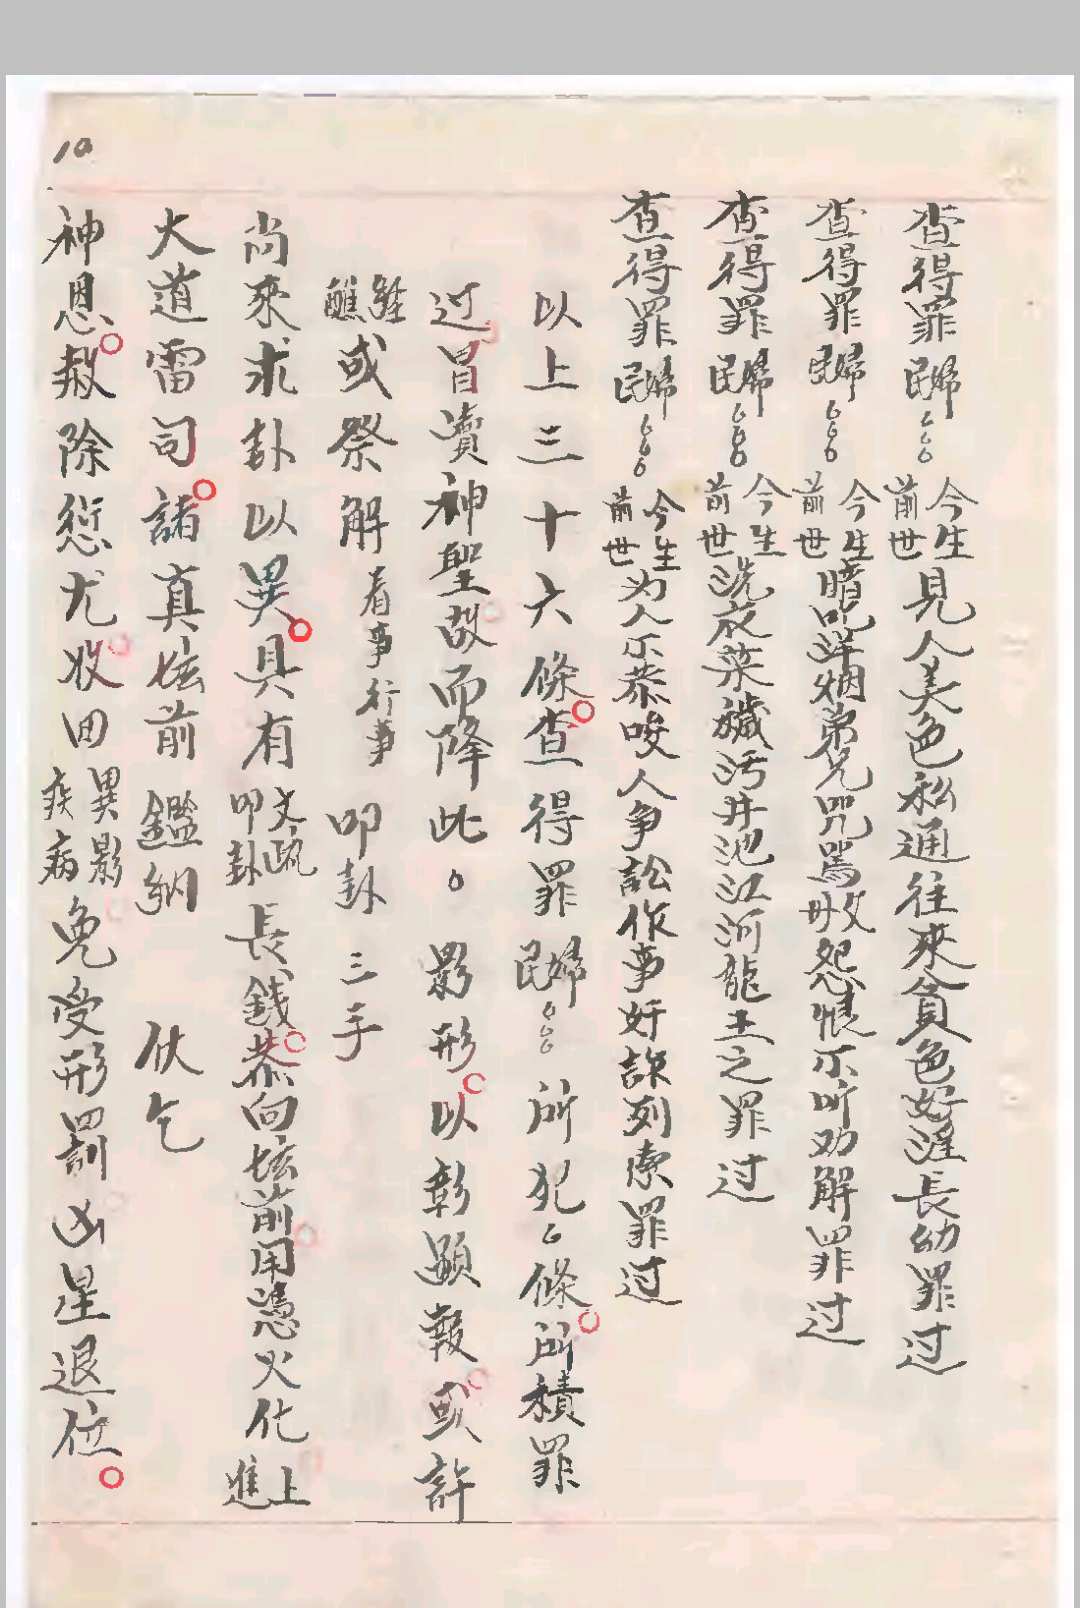 查得罪民婦〻〻〻今生前世見人美色私通往來貪色好淫長幼罪过
查得罪民婦〻〻〻今生前世暗吃洋烟弟兄咒骂父母怨恨不听劝解罪过
查得罪民婦〻〻〻今生前世洗衣菜穢污井池江河龍王之罪过
查得罪民婦〻〻〻今生前世为人不恭唆人争訟作事奸詐列索罪过
以上三十六條查得罪民婦〻〻〻所犯〻條所積罪
过冒瀆神聖故而降此。影形以彰顯報或許
經醮或祭解看事行事叩卦三手
尚來求卦以異具有文疏叩卦長錢恭向坛前用憑火化上進
大道雷司諸真坛前鑑納 伏乞
神恩赦除愆尤收回異影疾病免受形罰凶星退位
10